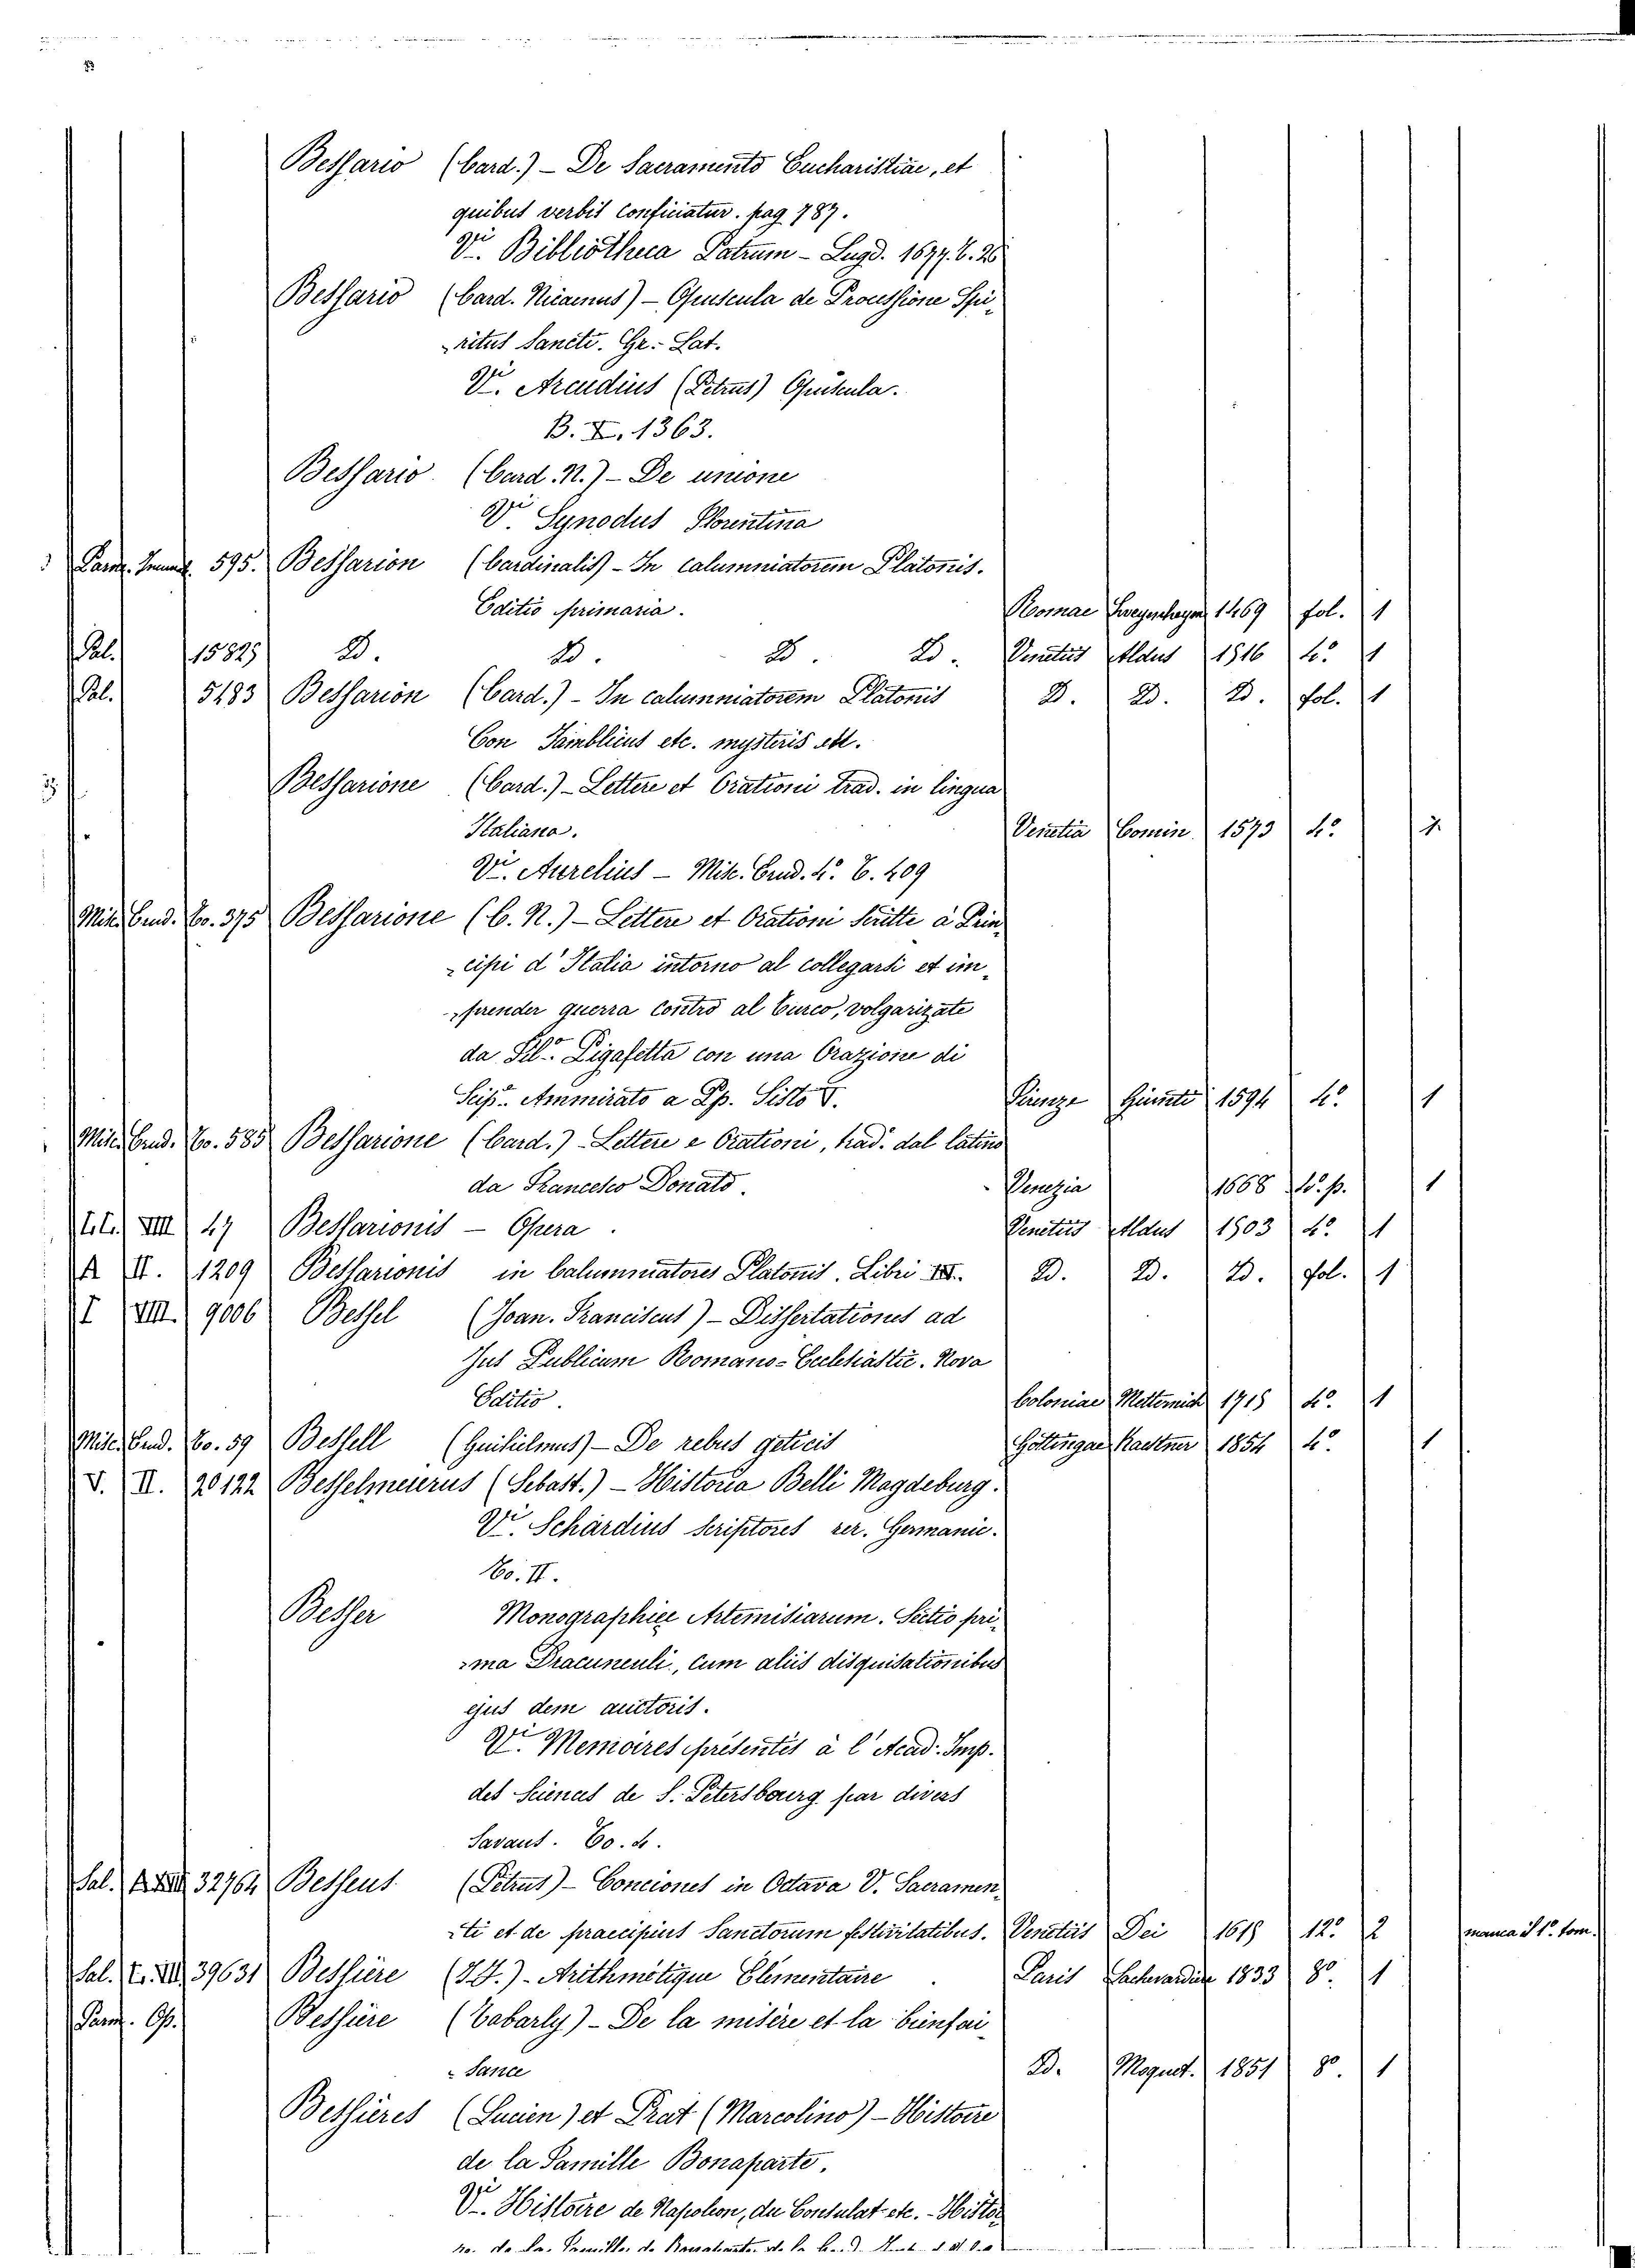 Bessario (Card.) – De Sacramento Eucharistiae, et
quibus verbis conficiatur. pag 787.
Vi. Bibliotheca Patrum – Lugd. 1677. t. 26
Bessario (Card. Nicaenus) – Opuscula de Processione Spi-
-ritus Sancti. Gr.- Lat.
Vi. Arcudius (Petrus) Opuscula.
B. X. 1363.
Bessario. (Card. N.) – De unione
Vi. Synodus Florentina
595. Bessarion (Cardinalis) – In calumniatorem Platonis.
Editio primaria. Romae 1469 fol. 1
Pal. 15825 D. D. D. D. Venetiis Aldus 1516 4.º 1
Pal. 5183 Bessarion (Card.) – In calumniatorem Platonis D. D. D. fol. 1
Con Jamblicus etc. mysteris etc.
Bessarione (Card.) – Lettere et Orationi trad. in lingua
Italiana. Venetia Comin. 1573 4.º
Vi. Aurelius – Misc. Erud. 4.º T. 409
Misc. Erud. To. 375 Bessarione (C. N.) – Lettere et Orationi scritte a Prin-
-cipi d'Italia intorno al collegarsi et im-
-prender guerra contro al Turco, volgarizate
da Fil.º Pigafetta con una Orazione di
Scip.º Ammirato a Pp. Sisto V. Firenze Giunti 1594 4.º 1
Misc. Erud. To. 585 Bessarione (Card.) – Lettere e Orationi, trad. dal latino
da Francesco Donato. Venezia 4.º p. 1
VIII 47 Bessarionis – Opera. Venetiis Aldus 1503 4.º 1
A II. 1209 Bessarionis in Calumniatores Platonis. Libri D. D. D. fol. 1
I VIII. 9006 Bessel (Joan. Franciscus) – Dissertationes ad
Jus Publicum Romano-Ecclesiastic. Nova
Editio. Coloniae Metternich 1715 4.º 1
Misc. Erud. To. 59 Bessell (Guilielmus) – De rebus geticis Gottingae Kaestner 1854 4.º 1
V. II. 20122 Besselmeierus (Sebast.) – Historia Belli Magdeburg.
Vi. Schardius Scriptores rer. Germanic.
To. II.
Besser Monographice Artemisiarum. Sectio pri-
-ma Dracunculi, cum aliis disquisationibus
ejus dem auctoris.
Vi. Memoires présentés à l'Acad. Imp.
des Sciences de S. Petersbourg par divers
Savans. To. 4.
Sal. 32764 Besseus (Petrus) – Conciones in Octava V. Sacramen-
-ti et de praecipuis Sanctorum festivitatibus. Venetiis Dei 12.º 2 manca il 1.º tom.
Sal. 39631 Bessière (J.J.) – Arithmétique Elementaire Paris Lachevardière 1833 8.º 1
Parm. Op. Bessière (Tabarly) – De la misère et la bienfai-
-sance D. Moquet. 1851 8.º 1
Bessières (Lucien) et Prat (Marcolino) – Histoire
de la Famille Bonaparte.
Vi. Histoire de Napoleon, du Consulat etc. – Histoi-